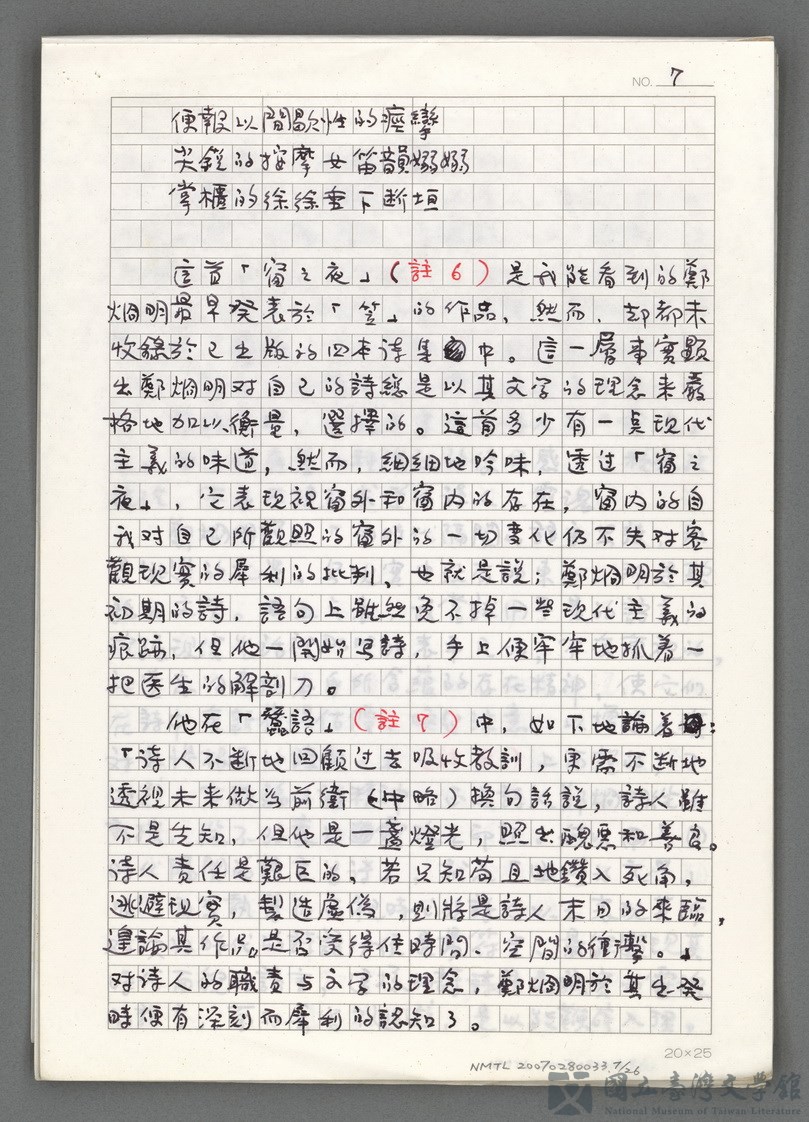 NO. 7
便報以間歇性的痙攣
尖銳的按摩女笛韻嫋嫋
掌櫃的徐徐垂下断垣
這首「窗之夜」(註6)是我能看到的鄭
烱明最早発表於「笠」的作品，然而，却都未
收錄於已出版的四本诗集中。這一層事實顯
出鄭烱明对自己的詩總是以其文学的理念來嚴
格地加以衡量，選擇的。這首多少有一点现代
主義的味道，然而，細細地吟味，透过「窗之
夜」，它表现視窗外和窗内的存在，窗内的自
我对自己所觀照的窗外的一切变化仍不失对客
觀现實的犀利的批判。也就是説；鄭烱明於其
初期的詩，語句上雖然免不掉一些现代主義的
痕跡，但他一開始写詩，手上便牢牢地抓着一
把医生的解剖刀。
他在「蠶語」(註7)中，如下地論着：
「诗人不断地回顧过去吸收教訓，更需不断地
透視未来做为前衛(中略)換句話說，詩人雖
不是先知，但他是一盞燈光，照出醜惡和善良。
诗人責任是艱巨的，若只知苟且地鑽入死角，
逃避现實，製造虛偽，則將是詩人末日的來臨，
遑論其作品是否受得住時間、空間的衝擊。」
对诗人的職責与文学的理念，鄭烱明於其出発
時便有深刻而犀利的認知了。
20×25
NMTL 20070280033.7/26
國立臺灣文學館
National Museum of Taiwan Literature